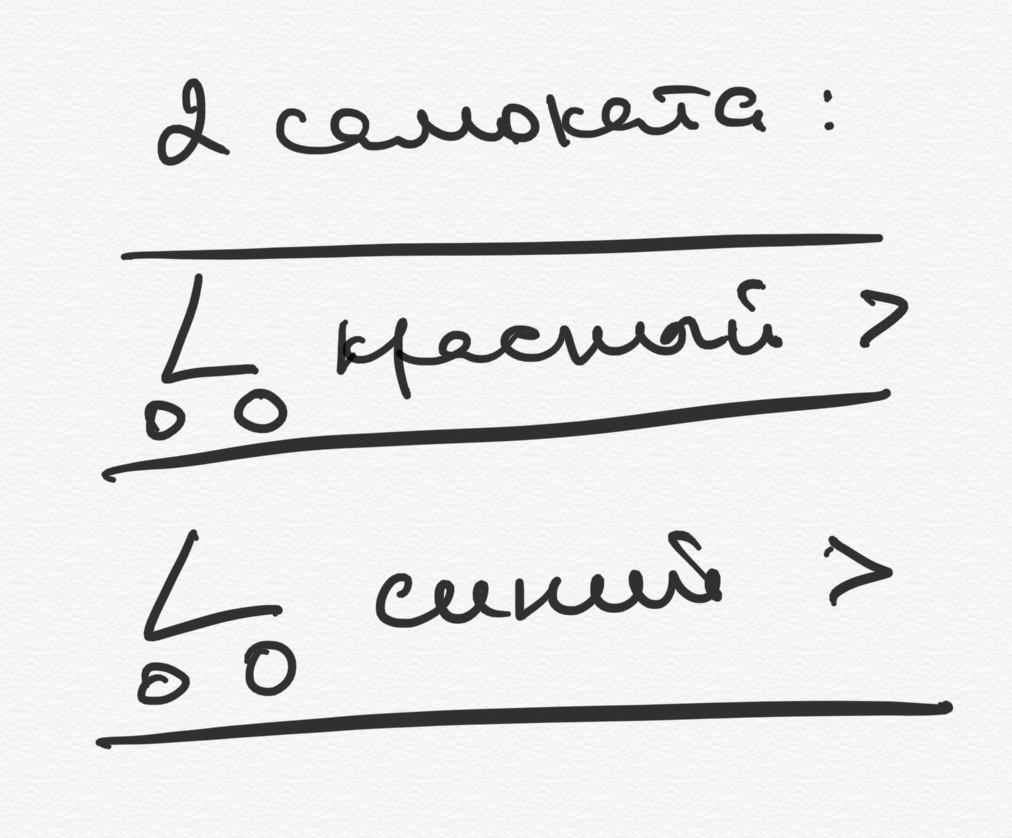 2 самоката:
красный >
синий >